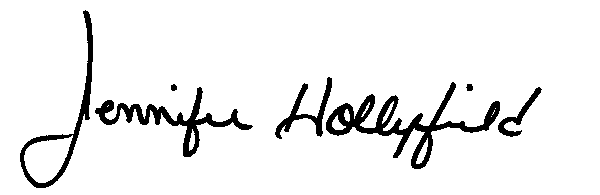 Jennifer Hollyfield